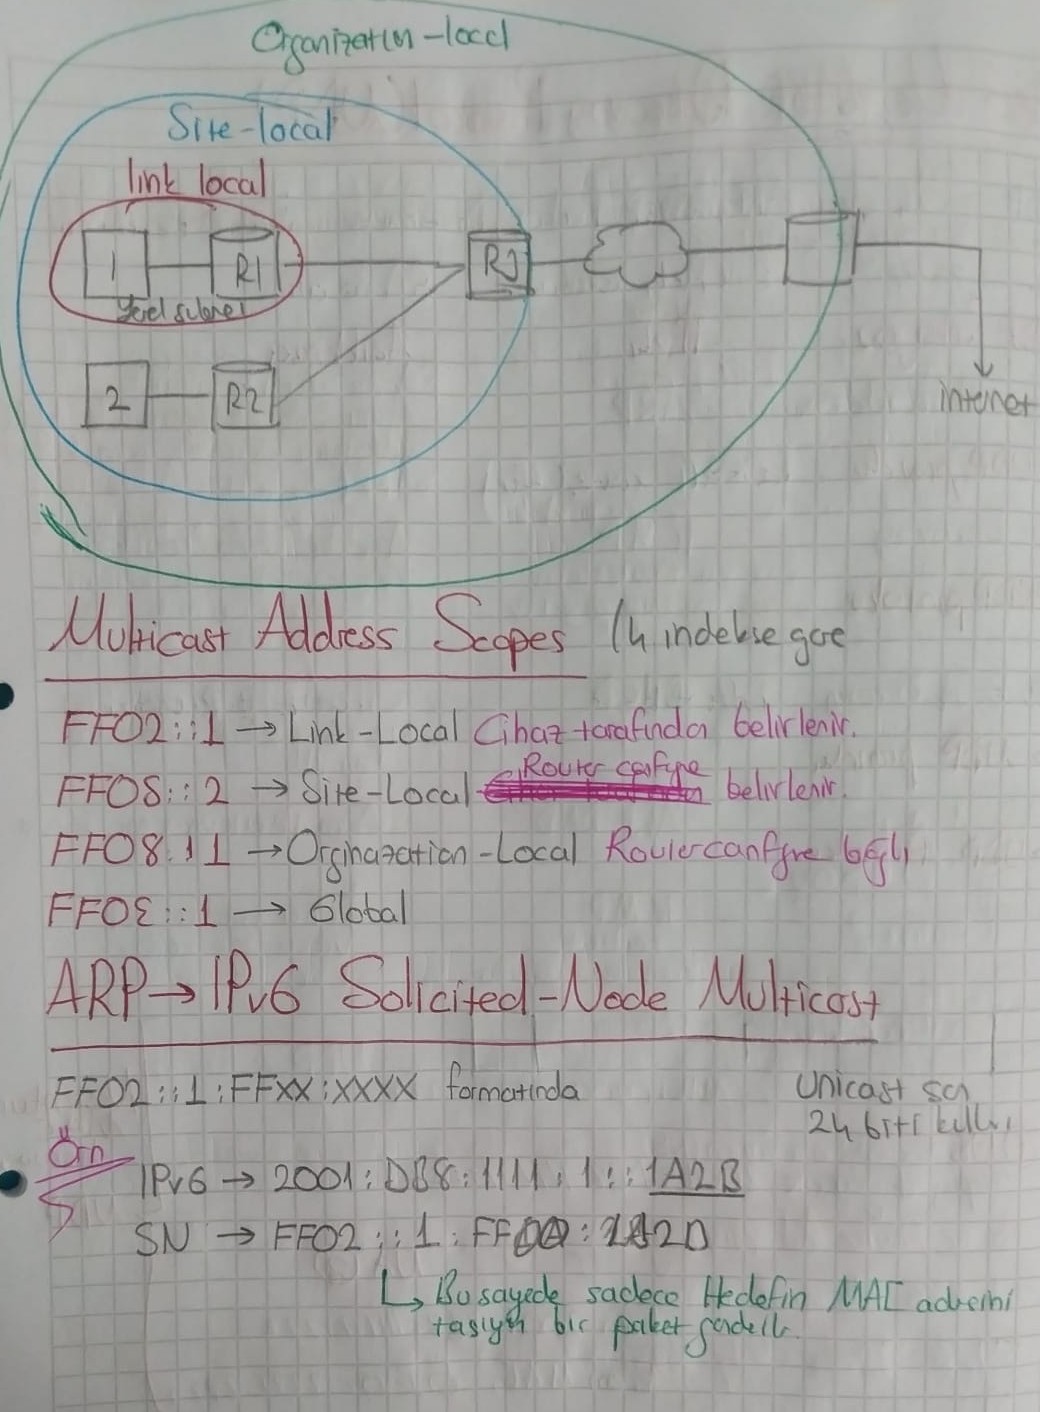 Organization-local
Site-local
link local
1 R1
Yerel subnet
R3
2 R2
internet
Multicast Address Scopes (4 indekse gore
FF02::1 → Link-Local Cihaz tarafından belirlenir.
FF05::2 → Site-Local Router confige belirlenir.
FF08::1 → Orginazation-Local Router confgre bağlı
FF0E::1 → Global
ARP → IPv6 Solicited-Node Multicast
FF02::1:FFXX:XXXX formatında
Unicast son
24 biti
Örn
IPv6 → 2001:DB8:1111:1::1A2B
SN → FF02::1:FF00:1A2D
↳ Bu sayede sadece Hedefin MAC adresini
taşıyan bir paket